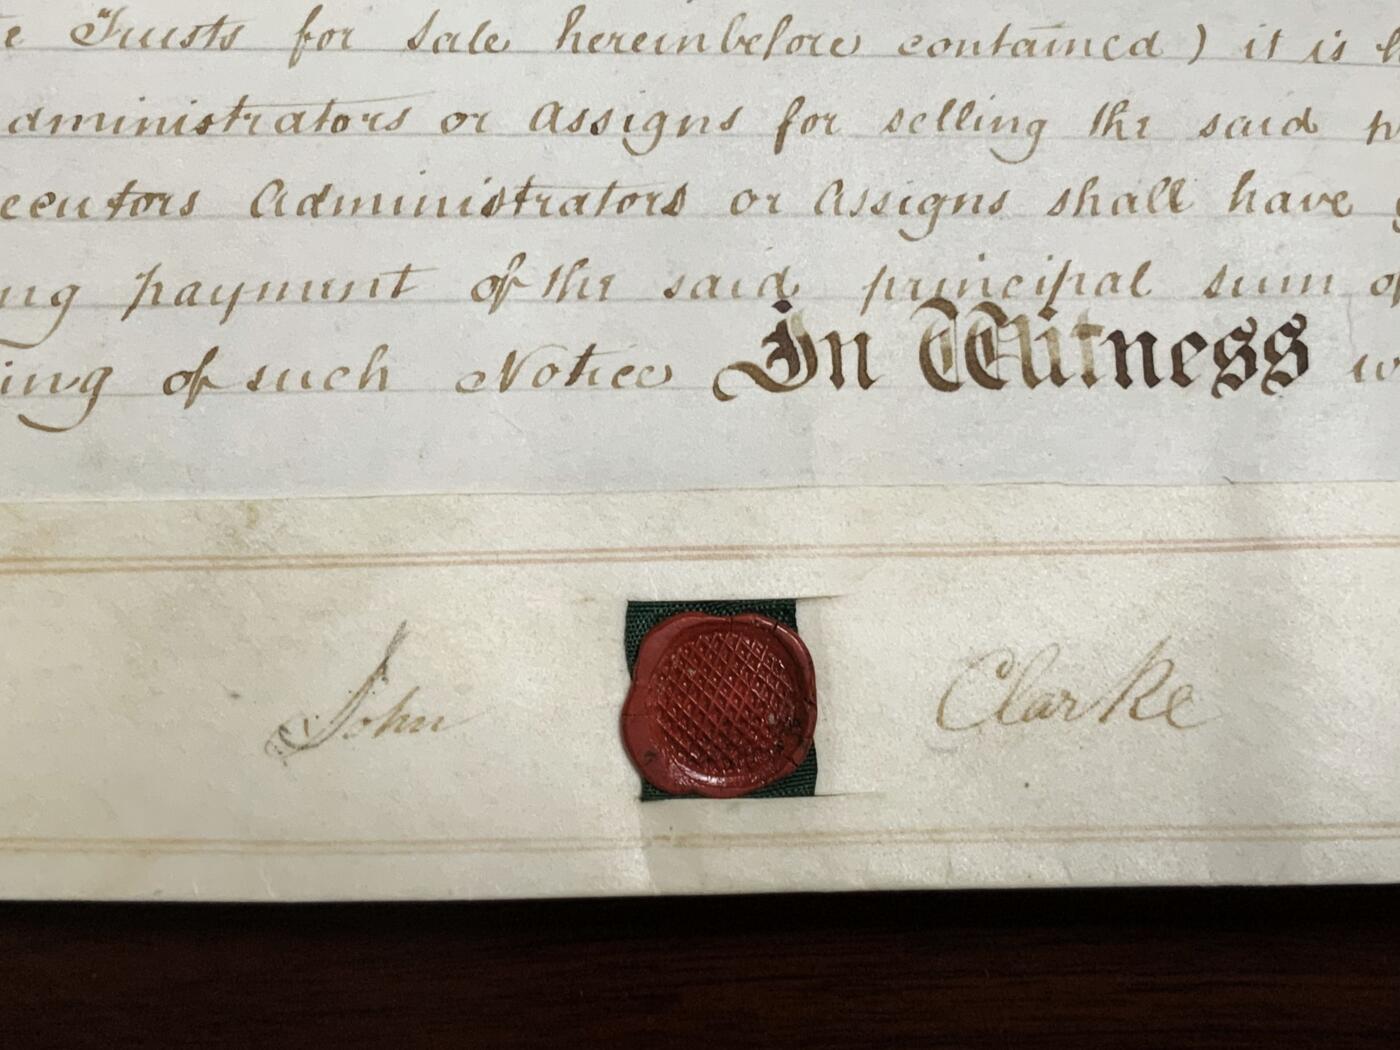 e Trusts for Sale hereinbefore contained) it is h
dministrators or Assigns for selling the said
ecutors Administrators or Assigns shall have
ng payment of the said principal sum of
ing of such Notice In Witness w
John Clarke